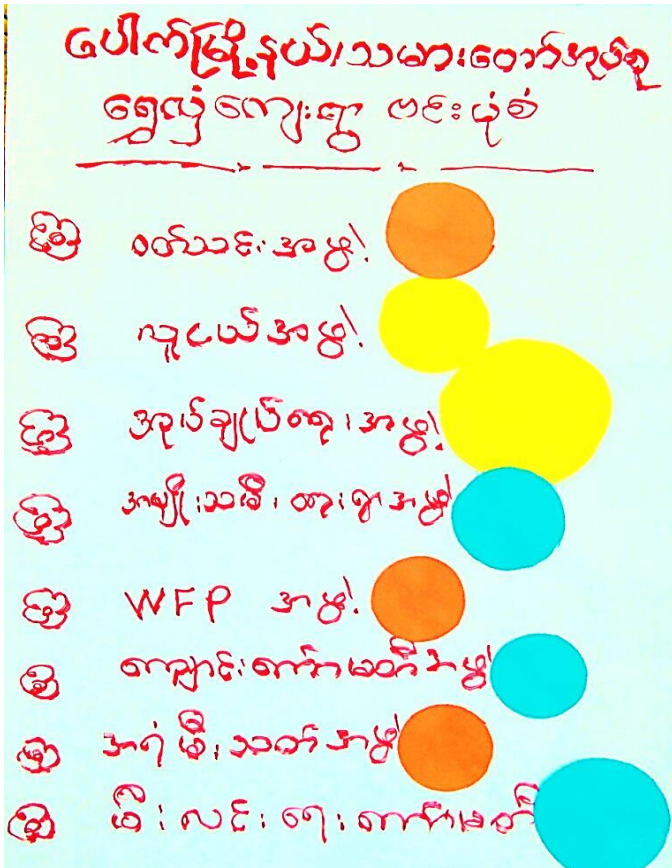 ပေါက်မြို့နယ်၊သမားတော်အုပ်စု
ရွှေလှံကျေးရွာ ဗင်းပုံစံ
ဝတ်သင်းအဖွဲ့
လူငယ်အဖွဲ့
အုပ်ချုပ်ရေးအဖွဲ့
အမျိုးသမီးရေးရာအဖွဲ့
WFP အဖွဲ့
ကျောင်းကော်မတီအဖွဲ့
အရံမီးသတ်အဖွဲ့
မီးလင်းရေးကော်မတီ